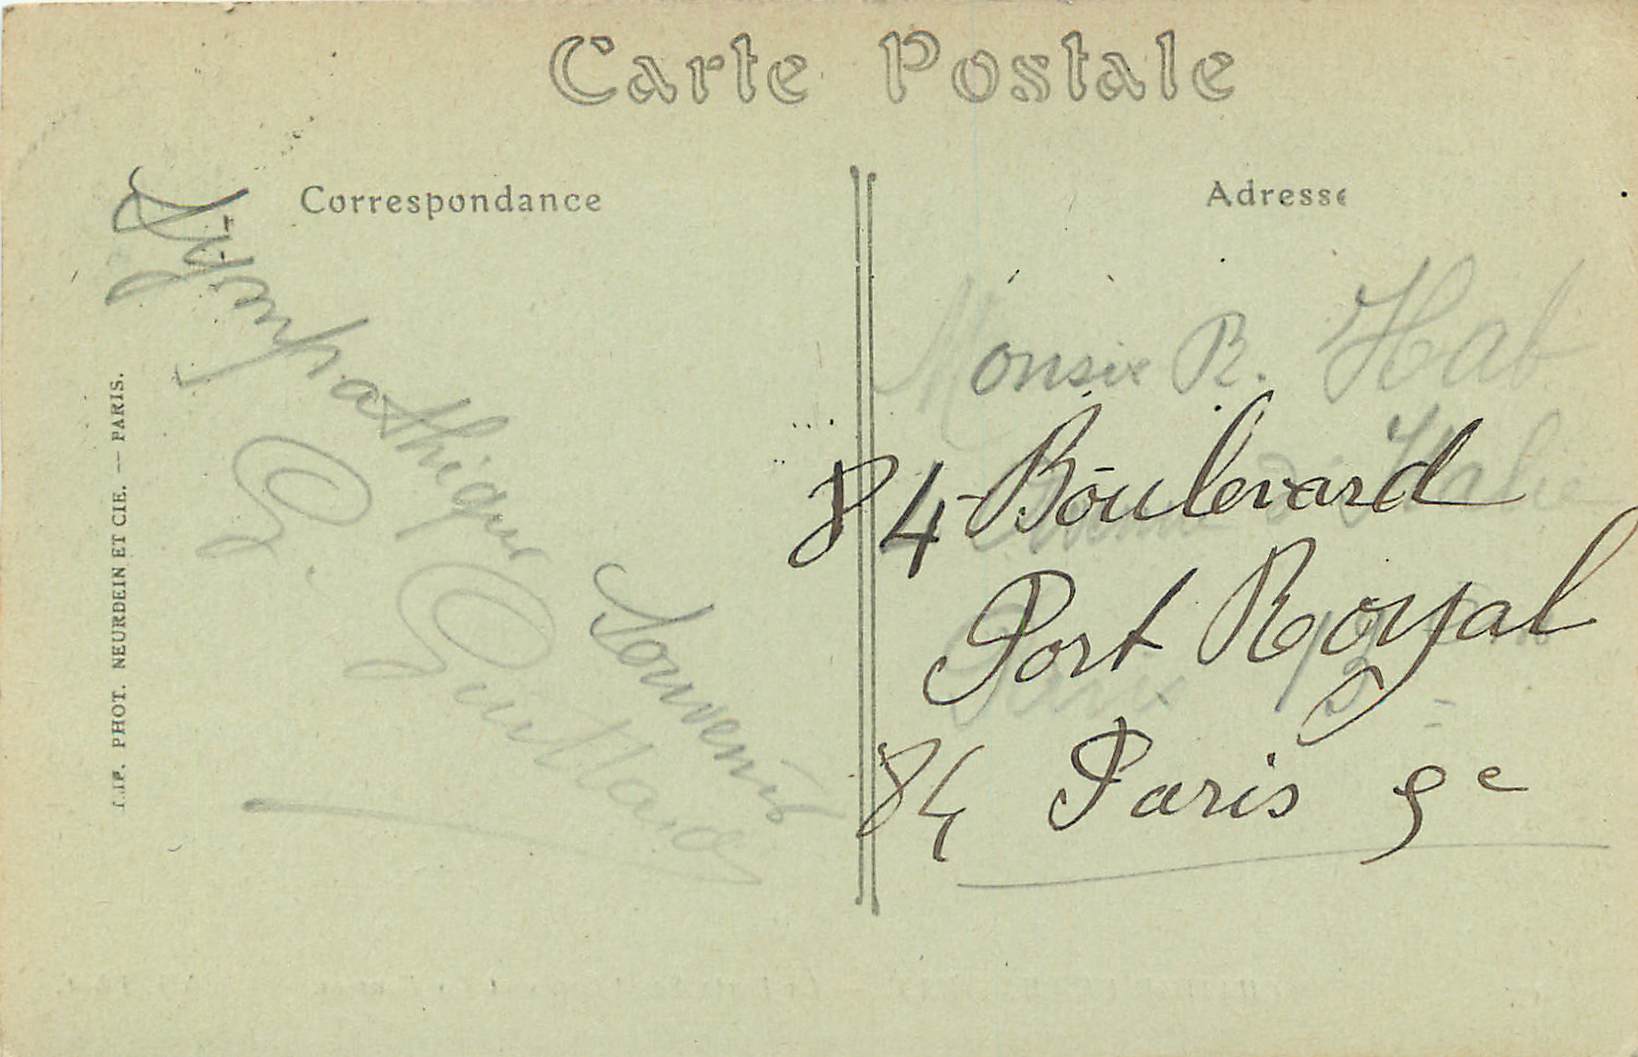 Carte Postale
Correspondance
Sympathique
Souvenir
G. Guillard
IMP. PHOT. NEURDEIN ET CIE. — PARIS.
Adresse
Monsie R. Hab
84 Boulevard
Port Royal
84 Paris 5e
Avenue d'Italie
Paris 13